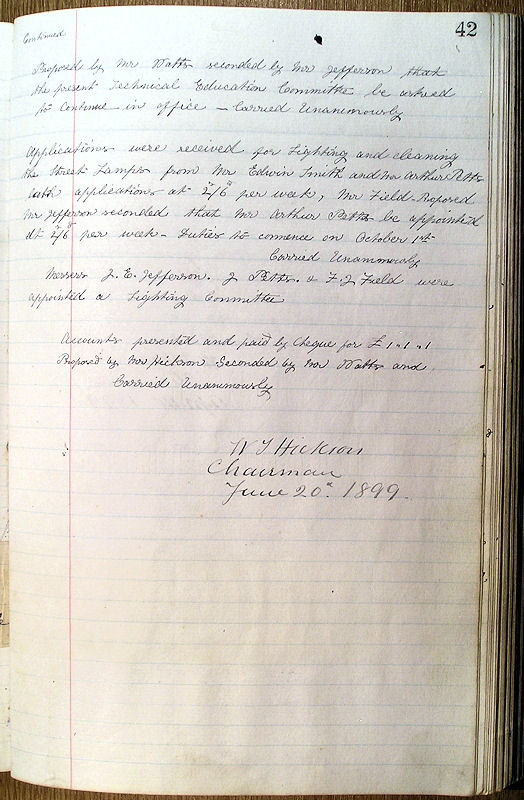 42
Continued
Proposed by Mr Watts seconded by Mr Jefferson that
the present Technical Education Committee be asked
to continue in office - Carried Unanimously
Applications were received for Lighting and cleaning
the Street Lamps from Mr Edwin Smith and Mr Arthur Petts
both applications at 2/6 per week, Mr Field Proposed
Mr Jefferson seconded that Mr Arthur Petts be appointed
at 2/6 per week - Duties to comence on October 1st
Carried Unanimously
Messers J. E. Jefferson. J Petts. & F. J Field were
appointed a Lighting Committee
Accounts presented and paid by Cheque for £ 1 " 1 " 1
Proposed by Mr Hickson Seconded by Mr Watts and
Carried Unanimously
W T Hickson
Chairman
June 20th 1899